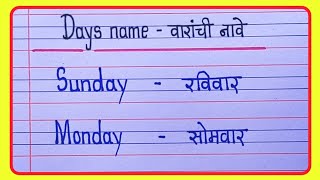 Days name - वारांची नावे
Sunday - रविवार
Monday - सोमवार